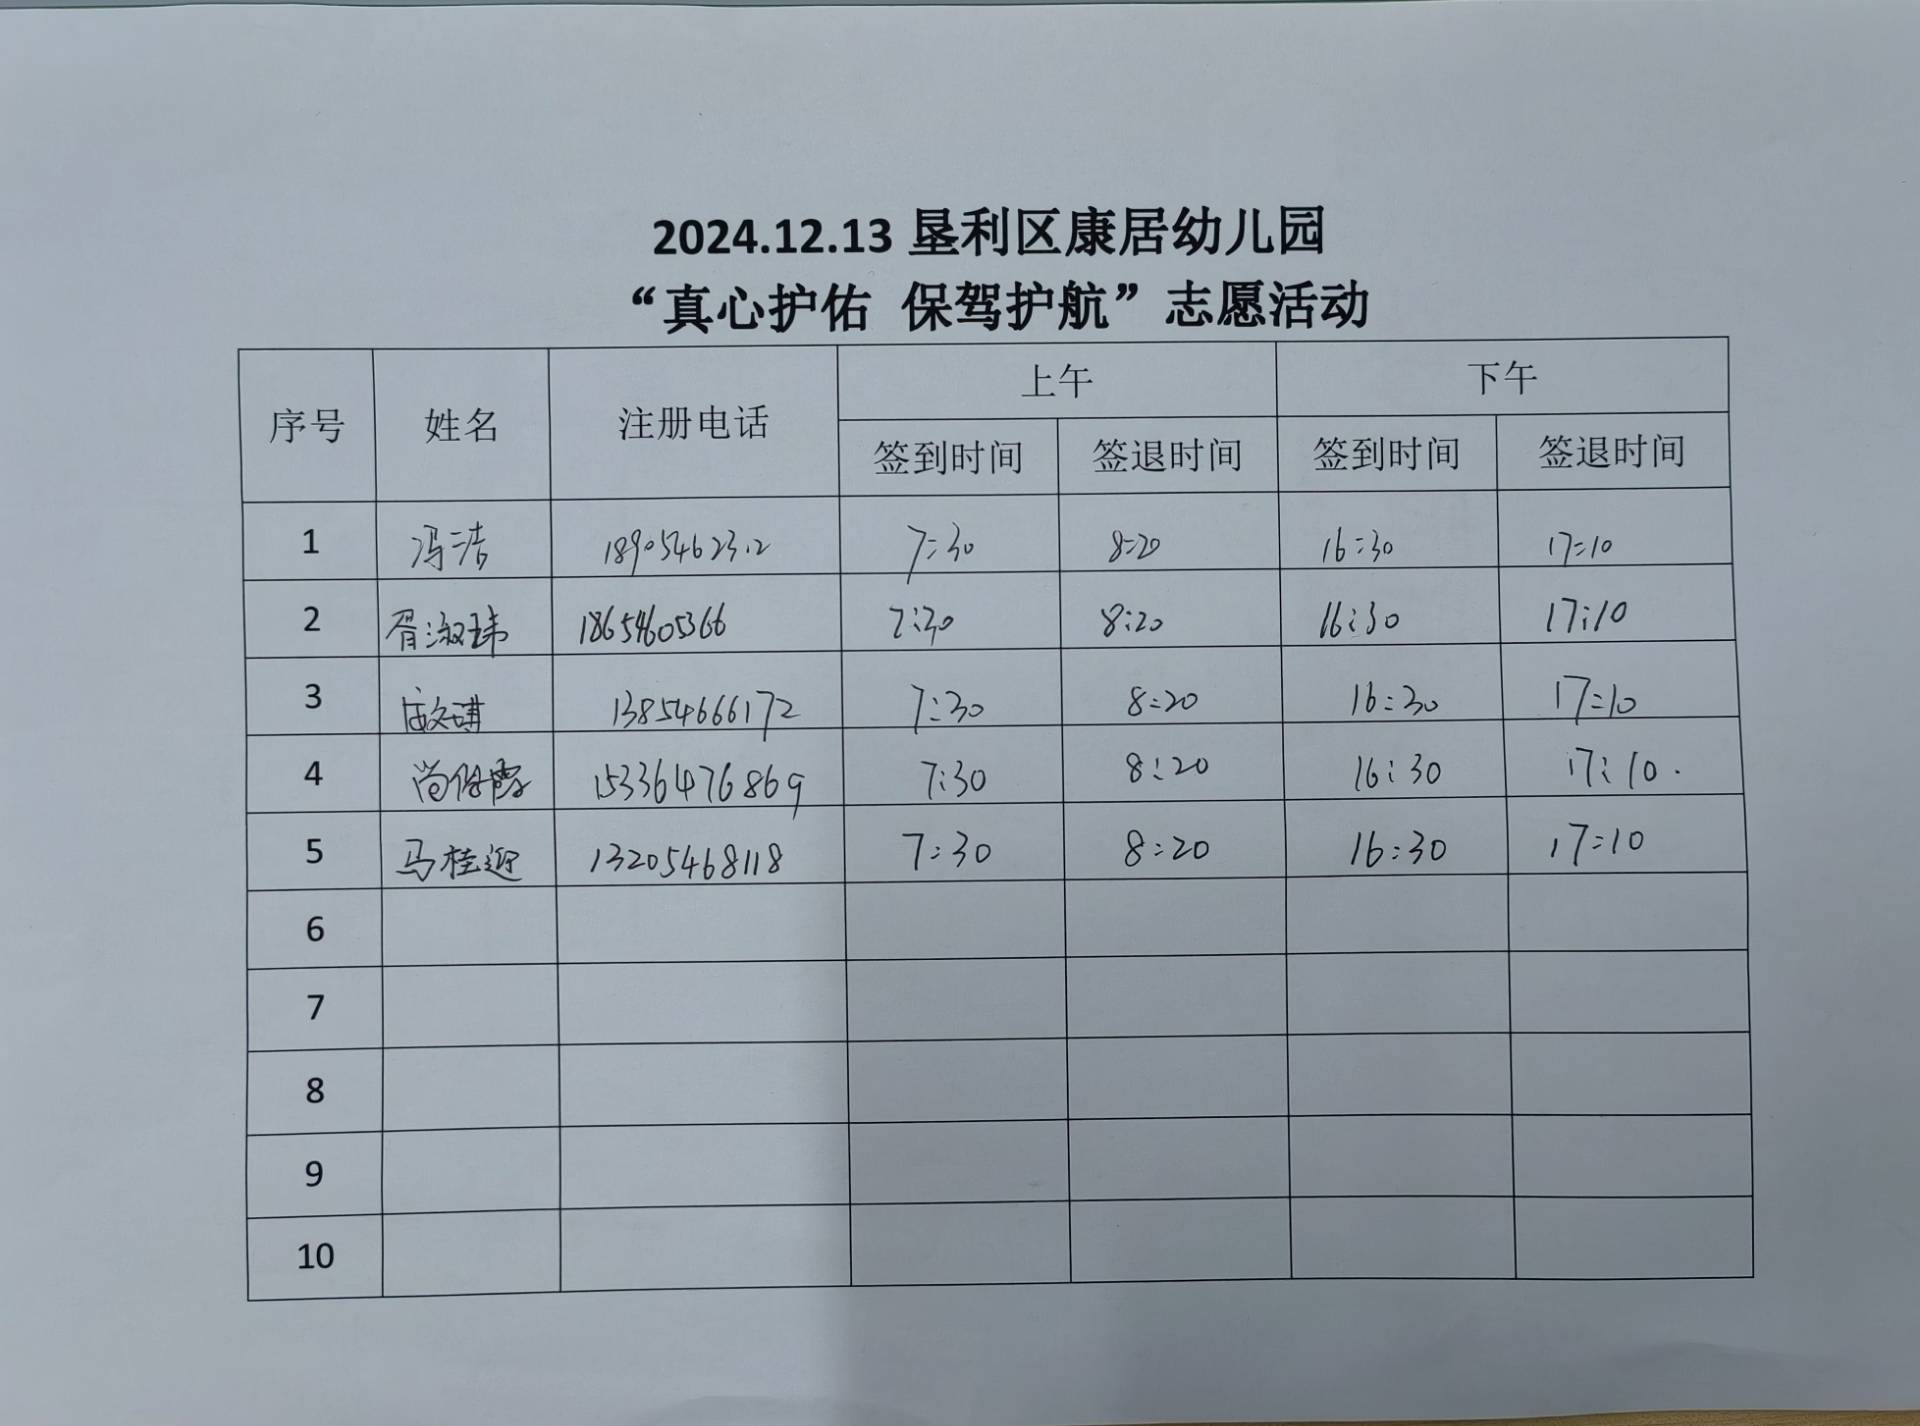 2024.12.13 垦利区康居幼儿园
“真心护佑 保驾护航”志愿活动
序号 姓名 注册电话 上午 下午
签到时间 签退时间 签到时间 签退时间
1 冯洁 7:30 8:20 16:30 17:10
2 胥淑玮 18654605366 7:30 8:20 16:30 17:10
3 13854666172 7:30 8:20 16:30 17:10
4 尚保霞 15336476869 7:30 8:20 16:30 17:10.
5 马桂迎 13205468118 7:30 8:20 16:30 17:10
6
7
8
9
10